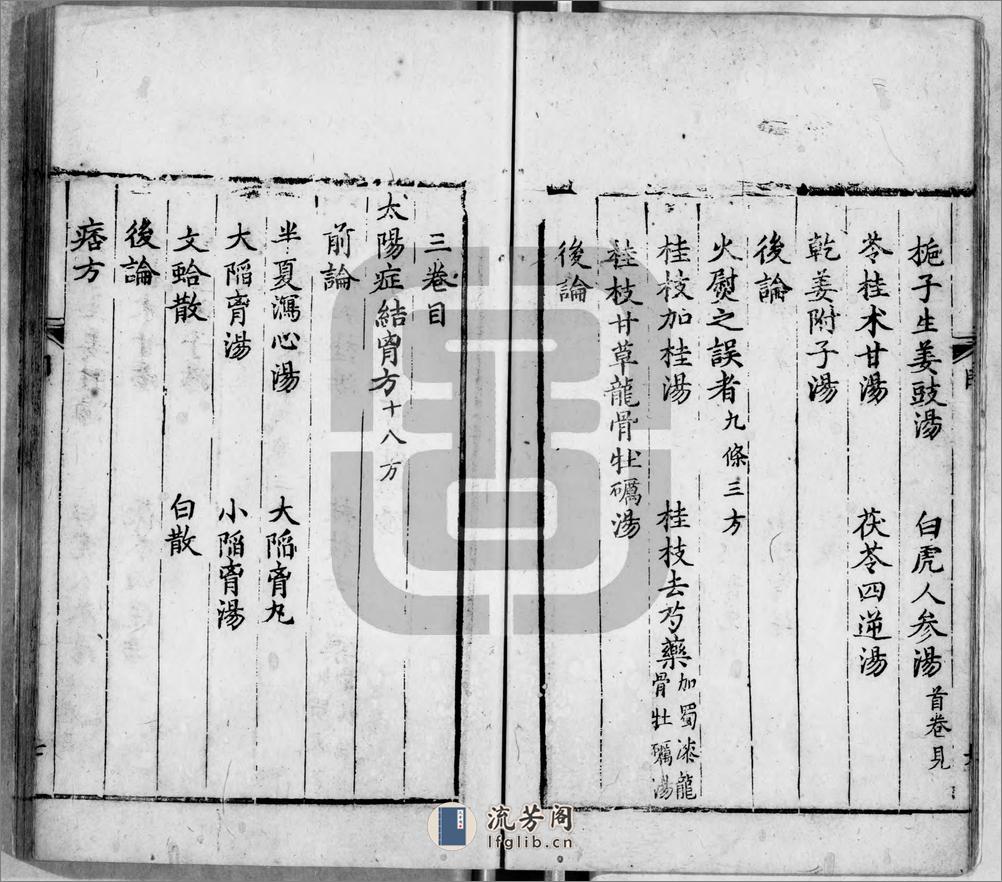 梔子生姜豉湯　白虎人参湯首卷見
苓桂术甘湯　茯苓四逆湯
乾姜附子湯
後論
火熨之誤者九條三方
桂枝加桂湯　桂枝去芍藥加蜀漆龍骨牡礪湯
桂枝甘草龍骨牡礪湯
後論
三卷目
太陽症結胷方十八方
前論
半夏瀉心湯　大陷胷丸
大陷胷湯　小陷胷湯
文蛤散　白散
後論
痞方
流芳阁
lfglib.cn